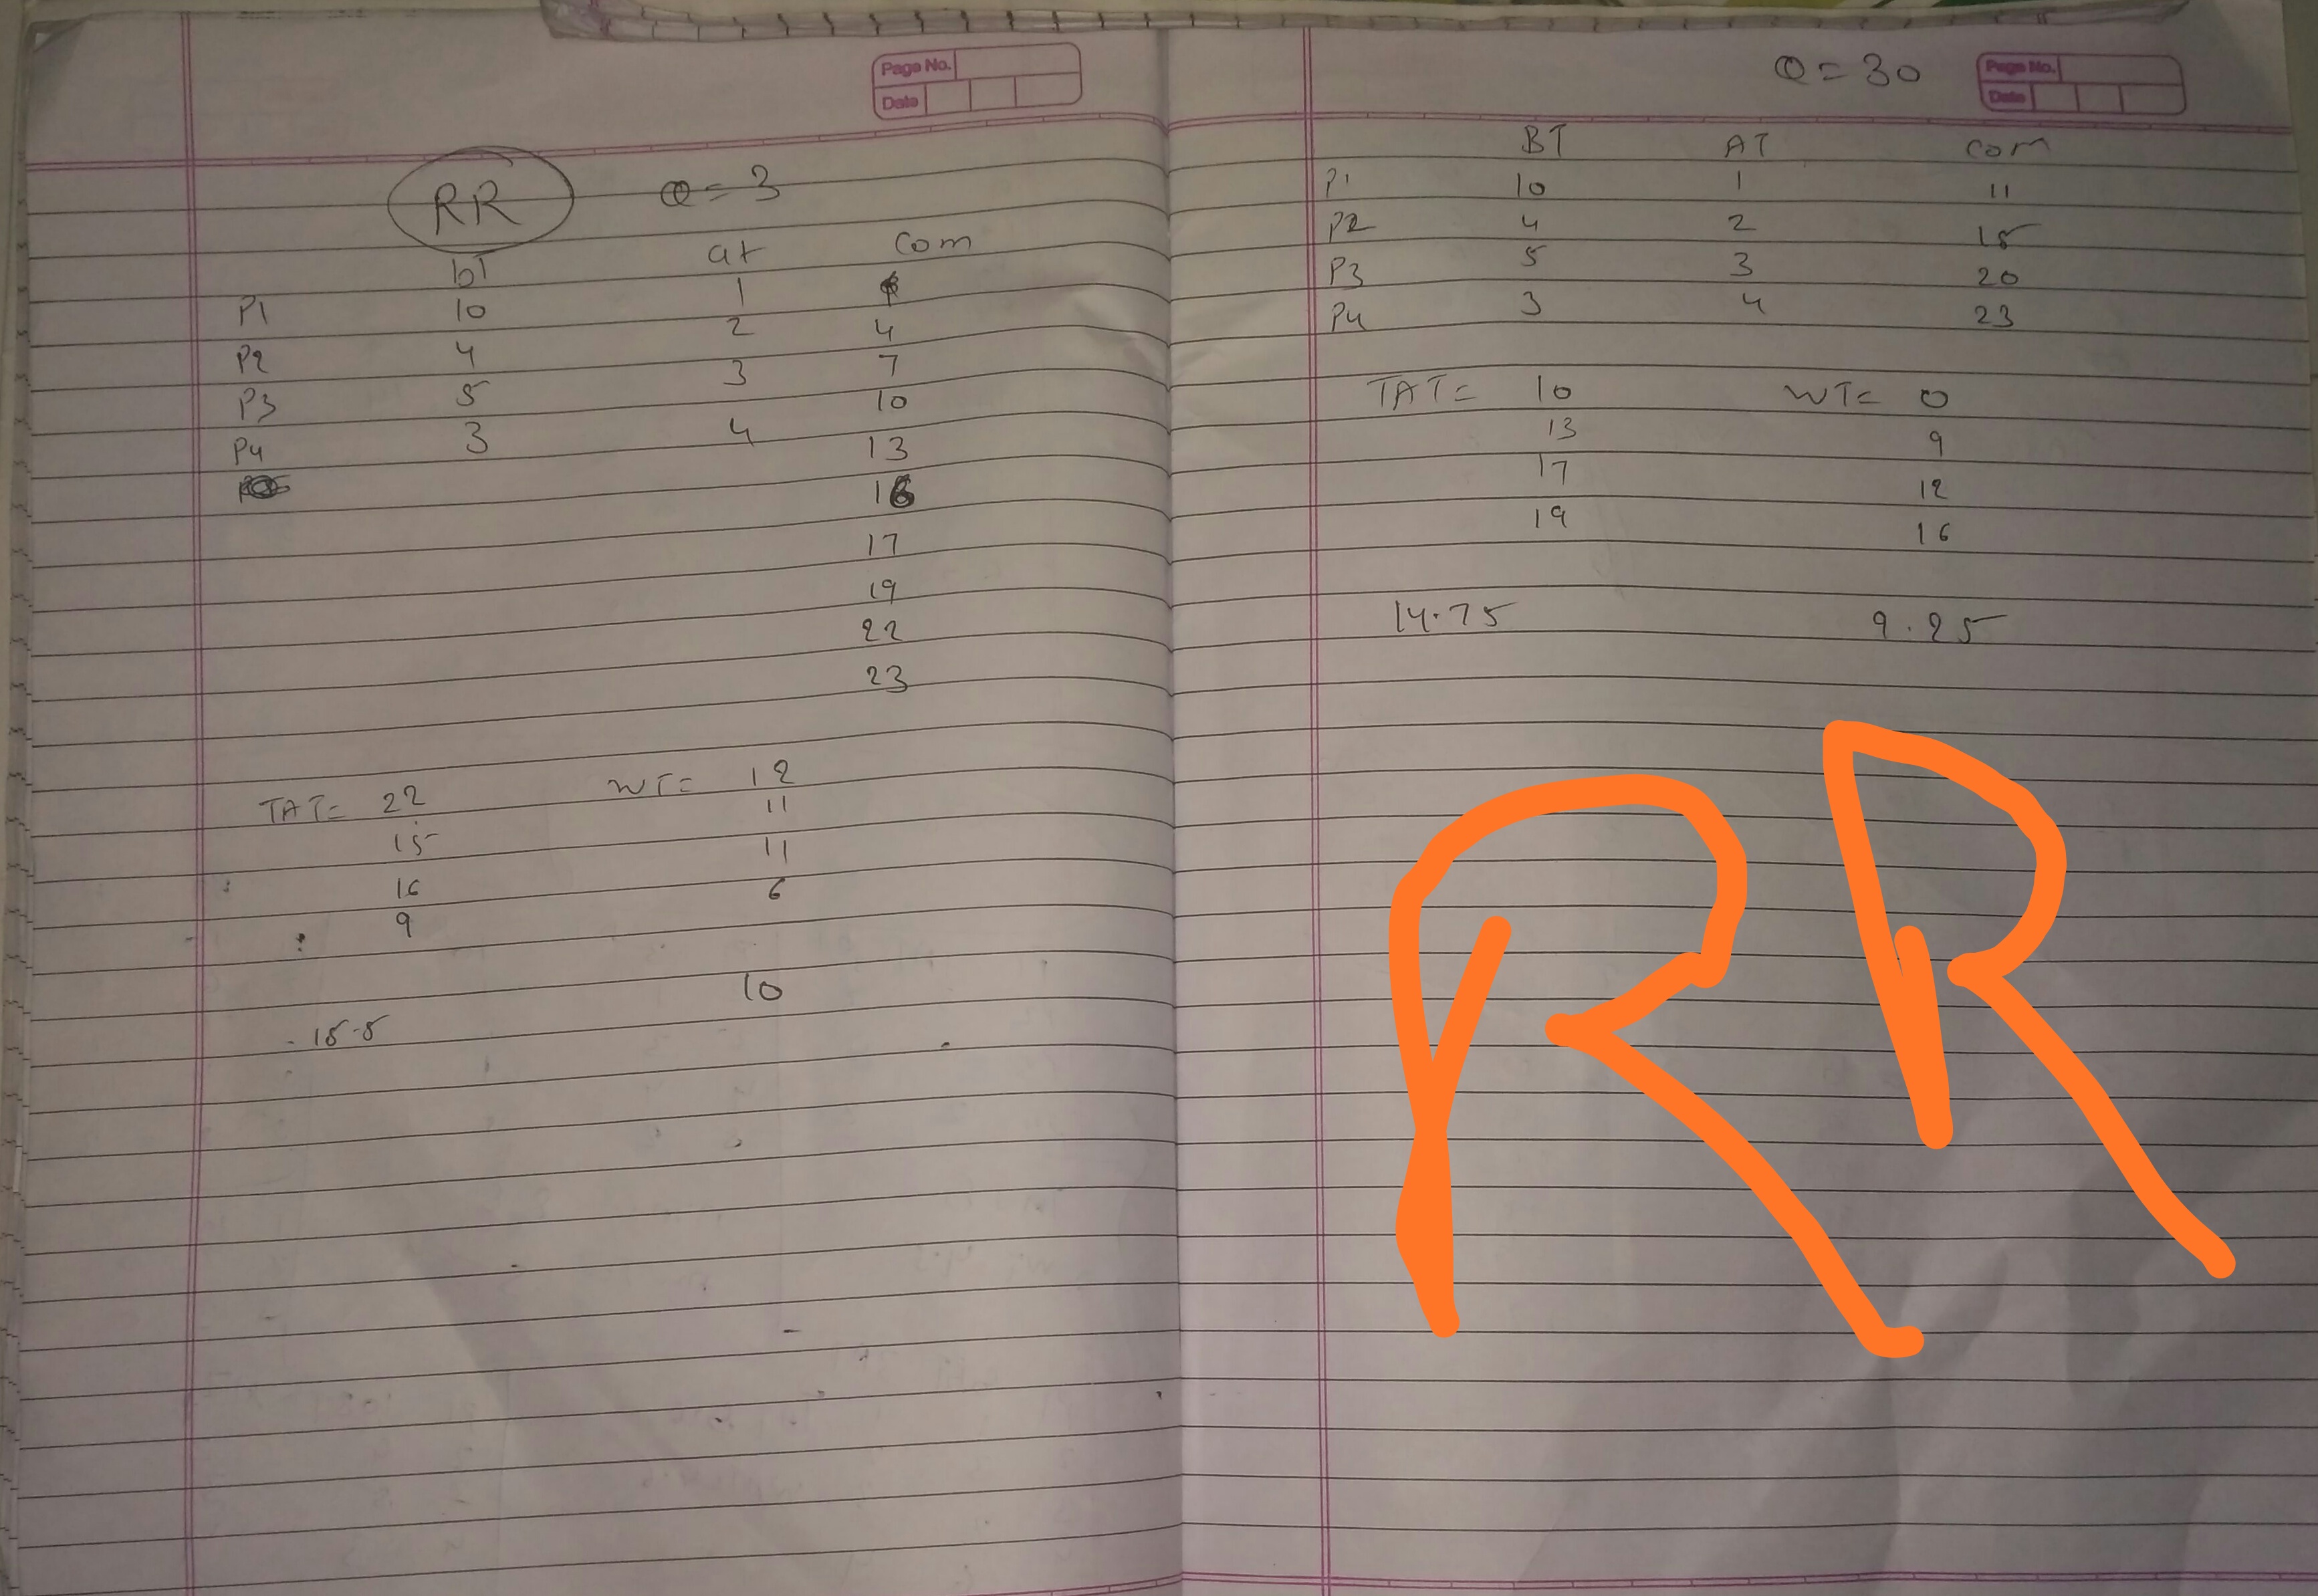 Page No.
Date
RR Q = 3
bT at com
P1 10 1
P2 4 2 4
P3 5 3 7
P4 3 4 10
13
16
17
19
22
23
TAT = 22 WT = 12
15 11
16 11
9 6
15.5 10
Q = 30
Page No.
Date
BT AT com
P1 10 1 11
P2 4 2 15
P3 5 3 20
P4 3 4 23
TAT = 10 WT = 0
13 9
17 12
19 16
14.75 9.25
RR